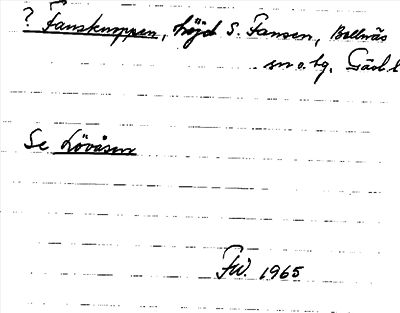 ? Fansknoppen, höjd S. Fansen, Bollnäs
sn o. hg. Gävl. l
Se Lövåsen
FW. 1965